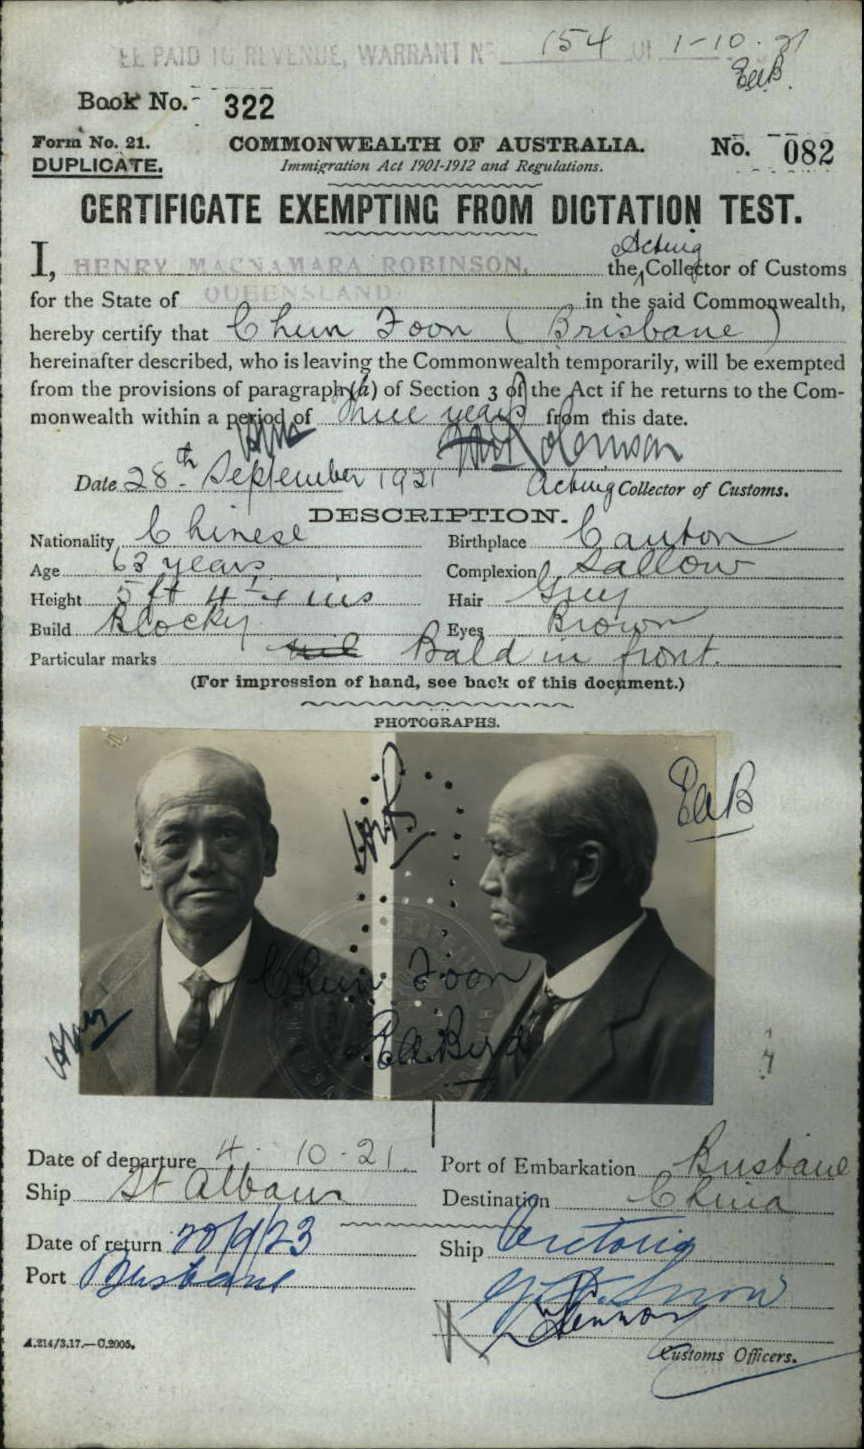 FEE PAID TO REVENUE, WARRANT No 154 OF 1-10-21
EeB.
Book No. 322
Form No. 21.
DUPLICATE.
COMMONWEALTH OF AUSTRALIA.
Immigration Act 1901-1912 and Regulations.
No. 082
CERTIFICATE EXEMPTING FROM DICTATION TEST.
I, HENRY MACNAMARA ROBINSON, the Acting Collector of Customs
for the State of QUEENSLAND in the said Commonwealth,
hereby certify that Chun Foon (Brisbane)
hereinafter described, who is leaving the Commonwealth temporarily, will be exempted
from the provisions of paragraph (a) of Section 3 of the Act if he returns to the Com-
monwealth within a period of three years from this date.
Date 28th September 1921 Acting Collector of Customs.
DESCRIPTION.
Nationality Chinese Birthplace Canton
Age 63 years Complexion Sallow
Height 5 ft 4 ins Hair Grey
Build Blocky Eyes Brown
Particular marks nil Bald in front.
(For impression of hand, see back of this document.)
PHOTOGRAPHS.
EeB
Chun Foon
EeBird
Date of departure 4-10-21 Port of Embarkation Brisbane
Ship St Albans Destination China
Date of return 20/9/23 Ship Victoria
Port Brisbane
A.214/3.17.—C.2005.
Customs Officers.